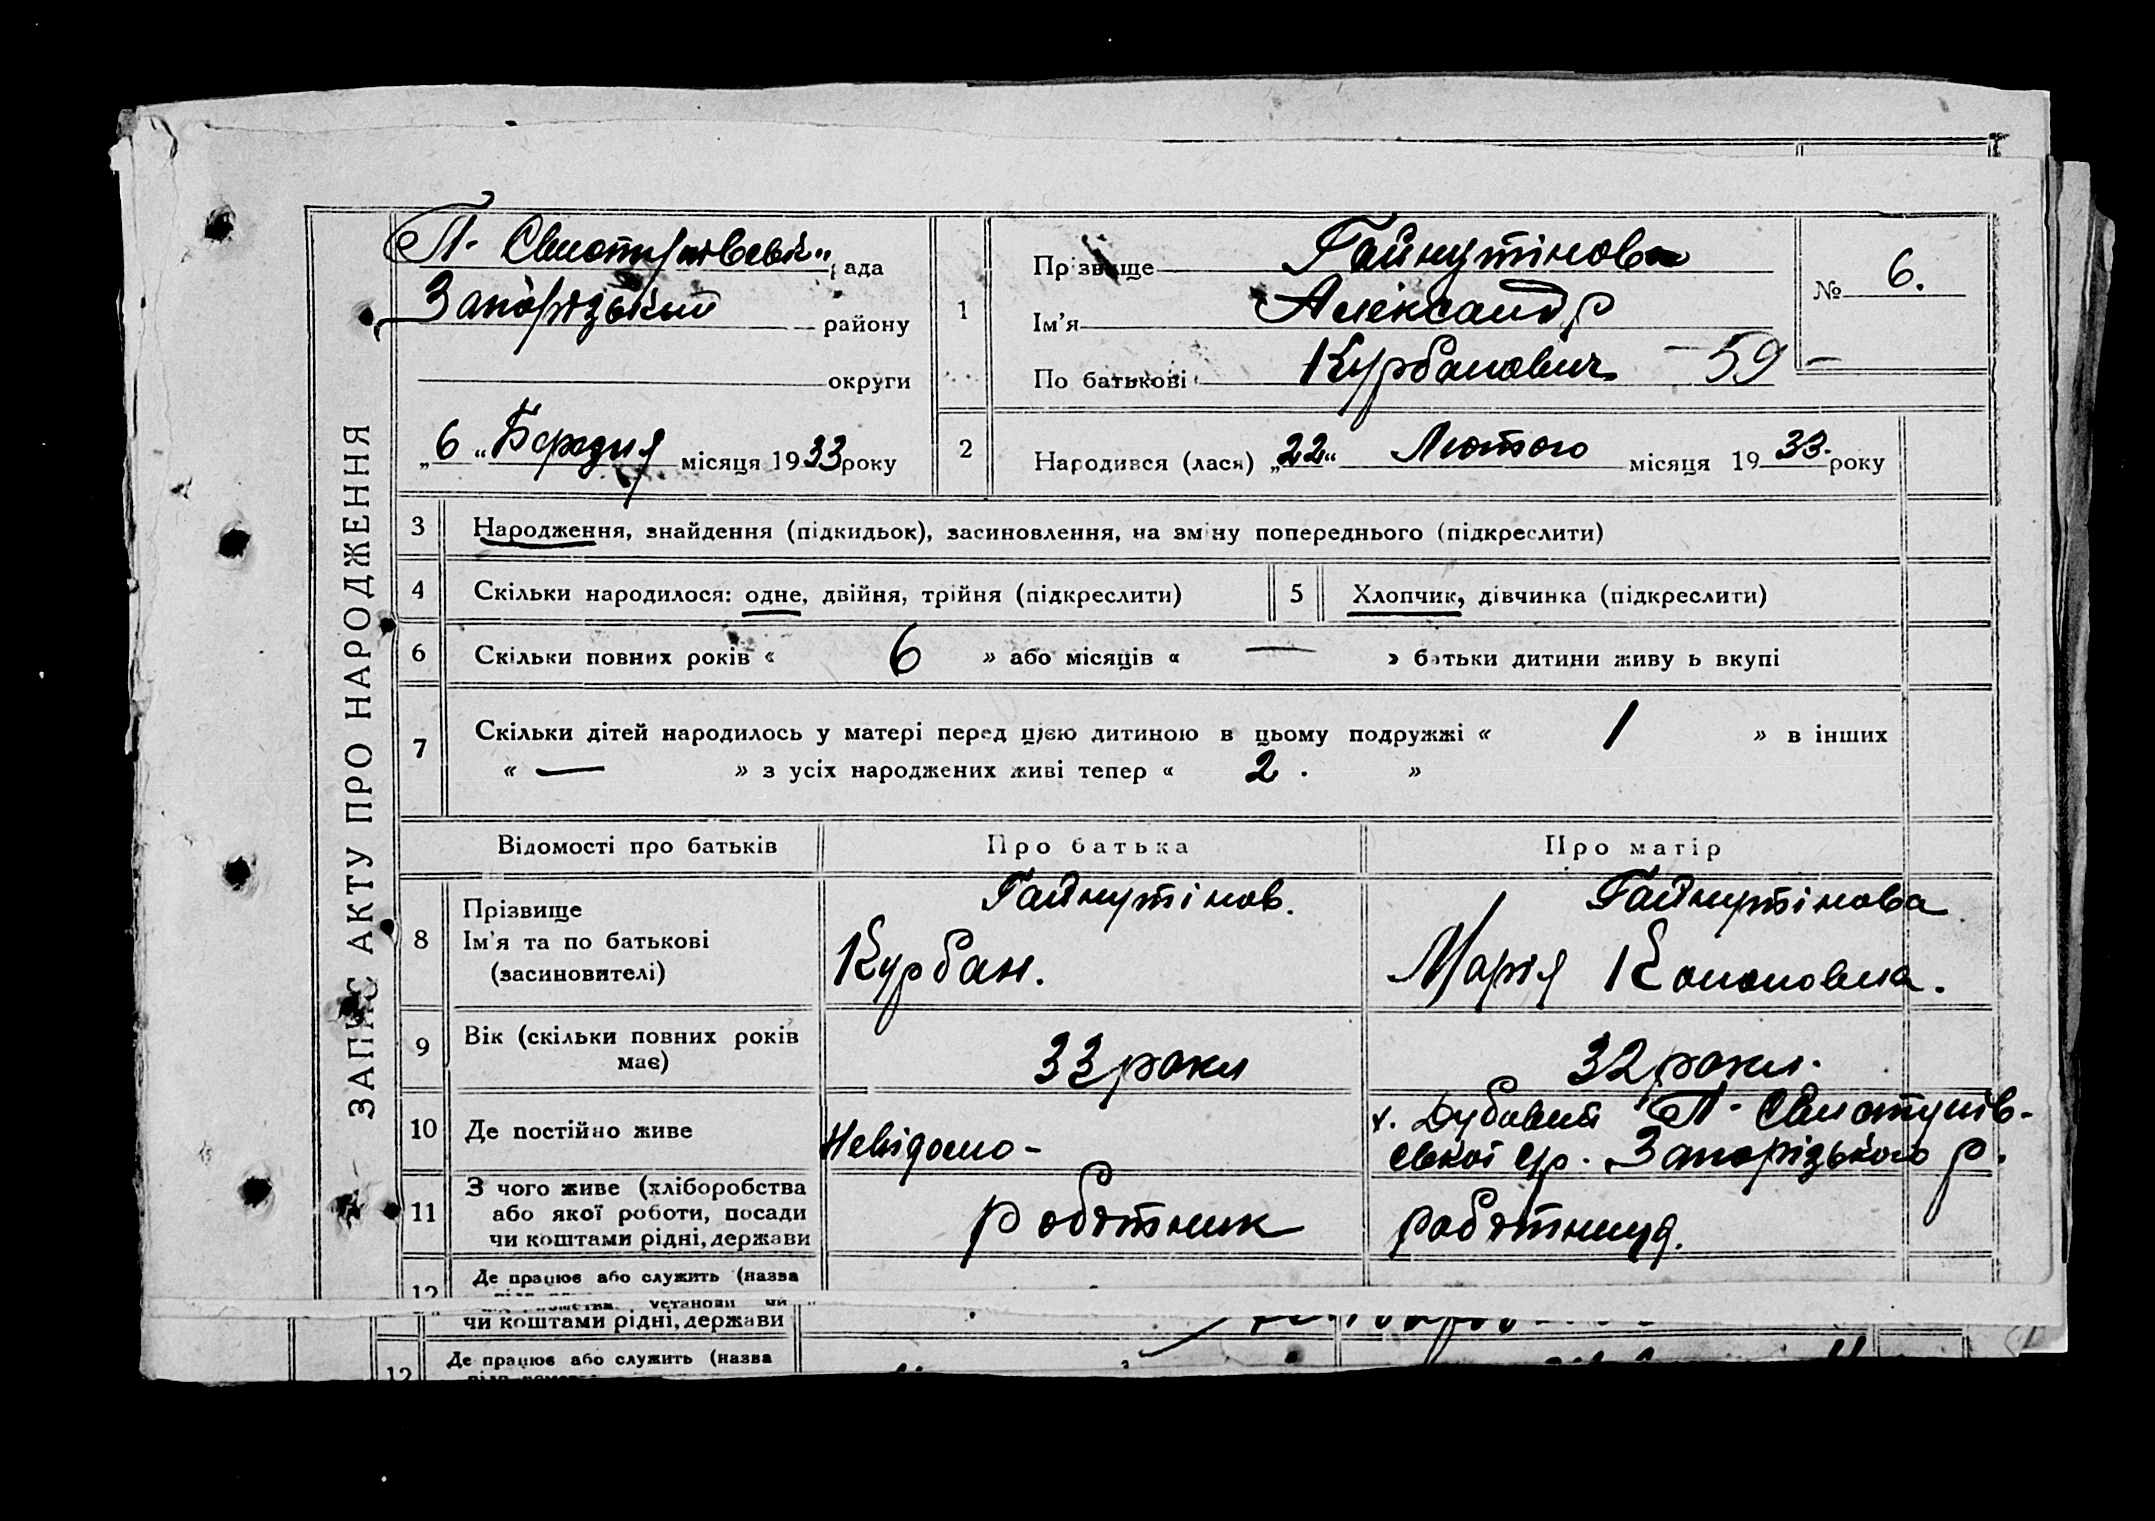 ЗАПИС АКТУ ПРО НАРОДЖЕННЯ
П. рада
Запорізький району
округи
„6“ Березня місяця 1933 року
1
Прізвище Гайнутінов
Ім'я Александр
По батькові Курбанович – 59 –
№ 6.
2
Народився (лася) „22“ Лютого місяця 1933. року
3 Народження, знайдення (підкидьок), засиновлення, на зміну попереднього (підкреслити)
4 Скільки народилося: одне, двійня, трійня (підкреслити) 5 Хлопчик, дівчинка (підкреслити)
6 Скільки повних років « 6 » або місяців « — » батьки дитини живуть вкупі
7 Скільки дітей народилось у матері перед цією дитиною в цьому подружжі « 1 » в інших
« — » з усіх народжених живі тепер « 2. »
Відомості про батьків Про батька Про матір
8 Прізвище
Ім'я та по батькові
(засиновителі)
Гайнутінов.
Курбан.
Гайнутінова
Марія Кононовна.
9 Вік (скільки повних років
має)
33 роки
32 роки.
10 Де постійно живе
Невідомо –
х. Дубовий П.
ської с/р. Запорізького р.
11 З чого живе (хліборобства
або якої роботи, посади
чи коштами рідні, держави
робітник
робітниця.
12 Де працює або служить (назва
установи чи
чи коштами рідні, держави
12 Де працює або служить (назва